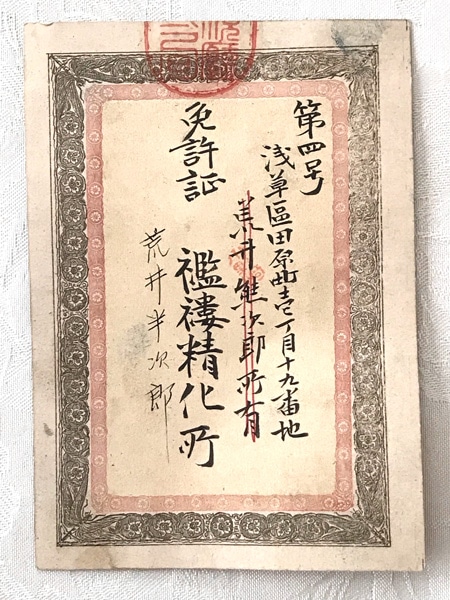 第四号
浅草區田原町壱丁目十九番地
荒井熊次郎所有
免許証
襤褸精化所
荒井半次郎